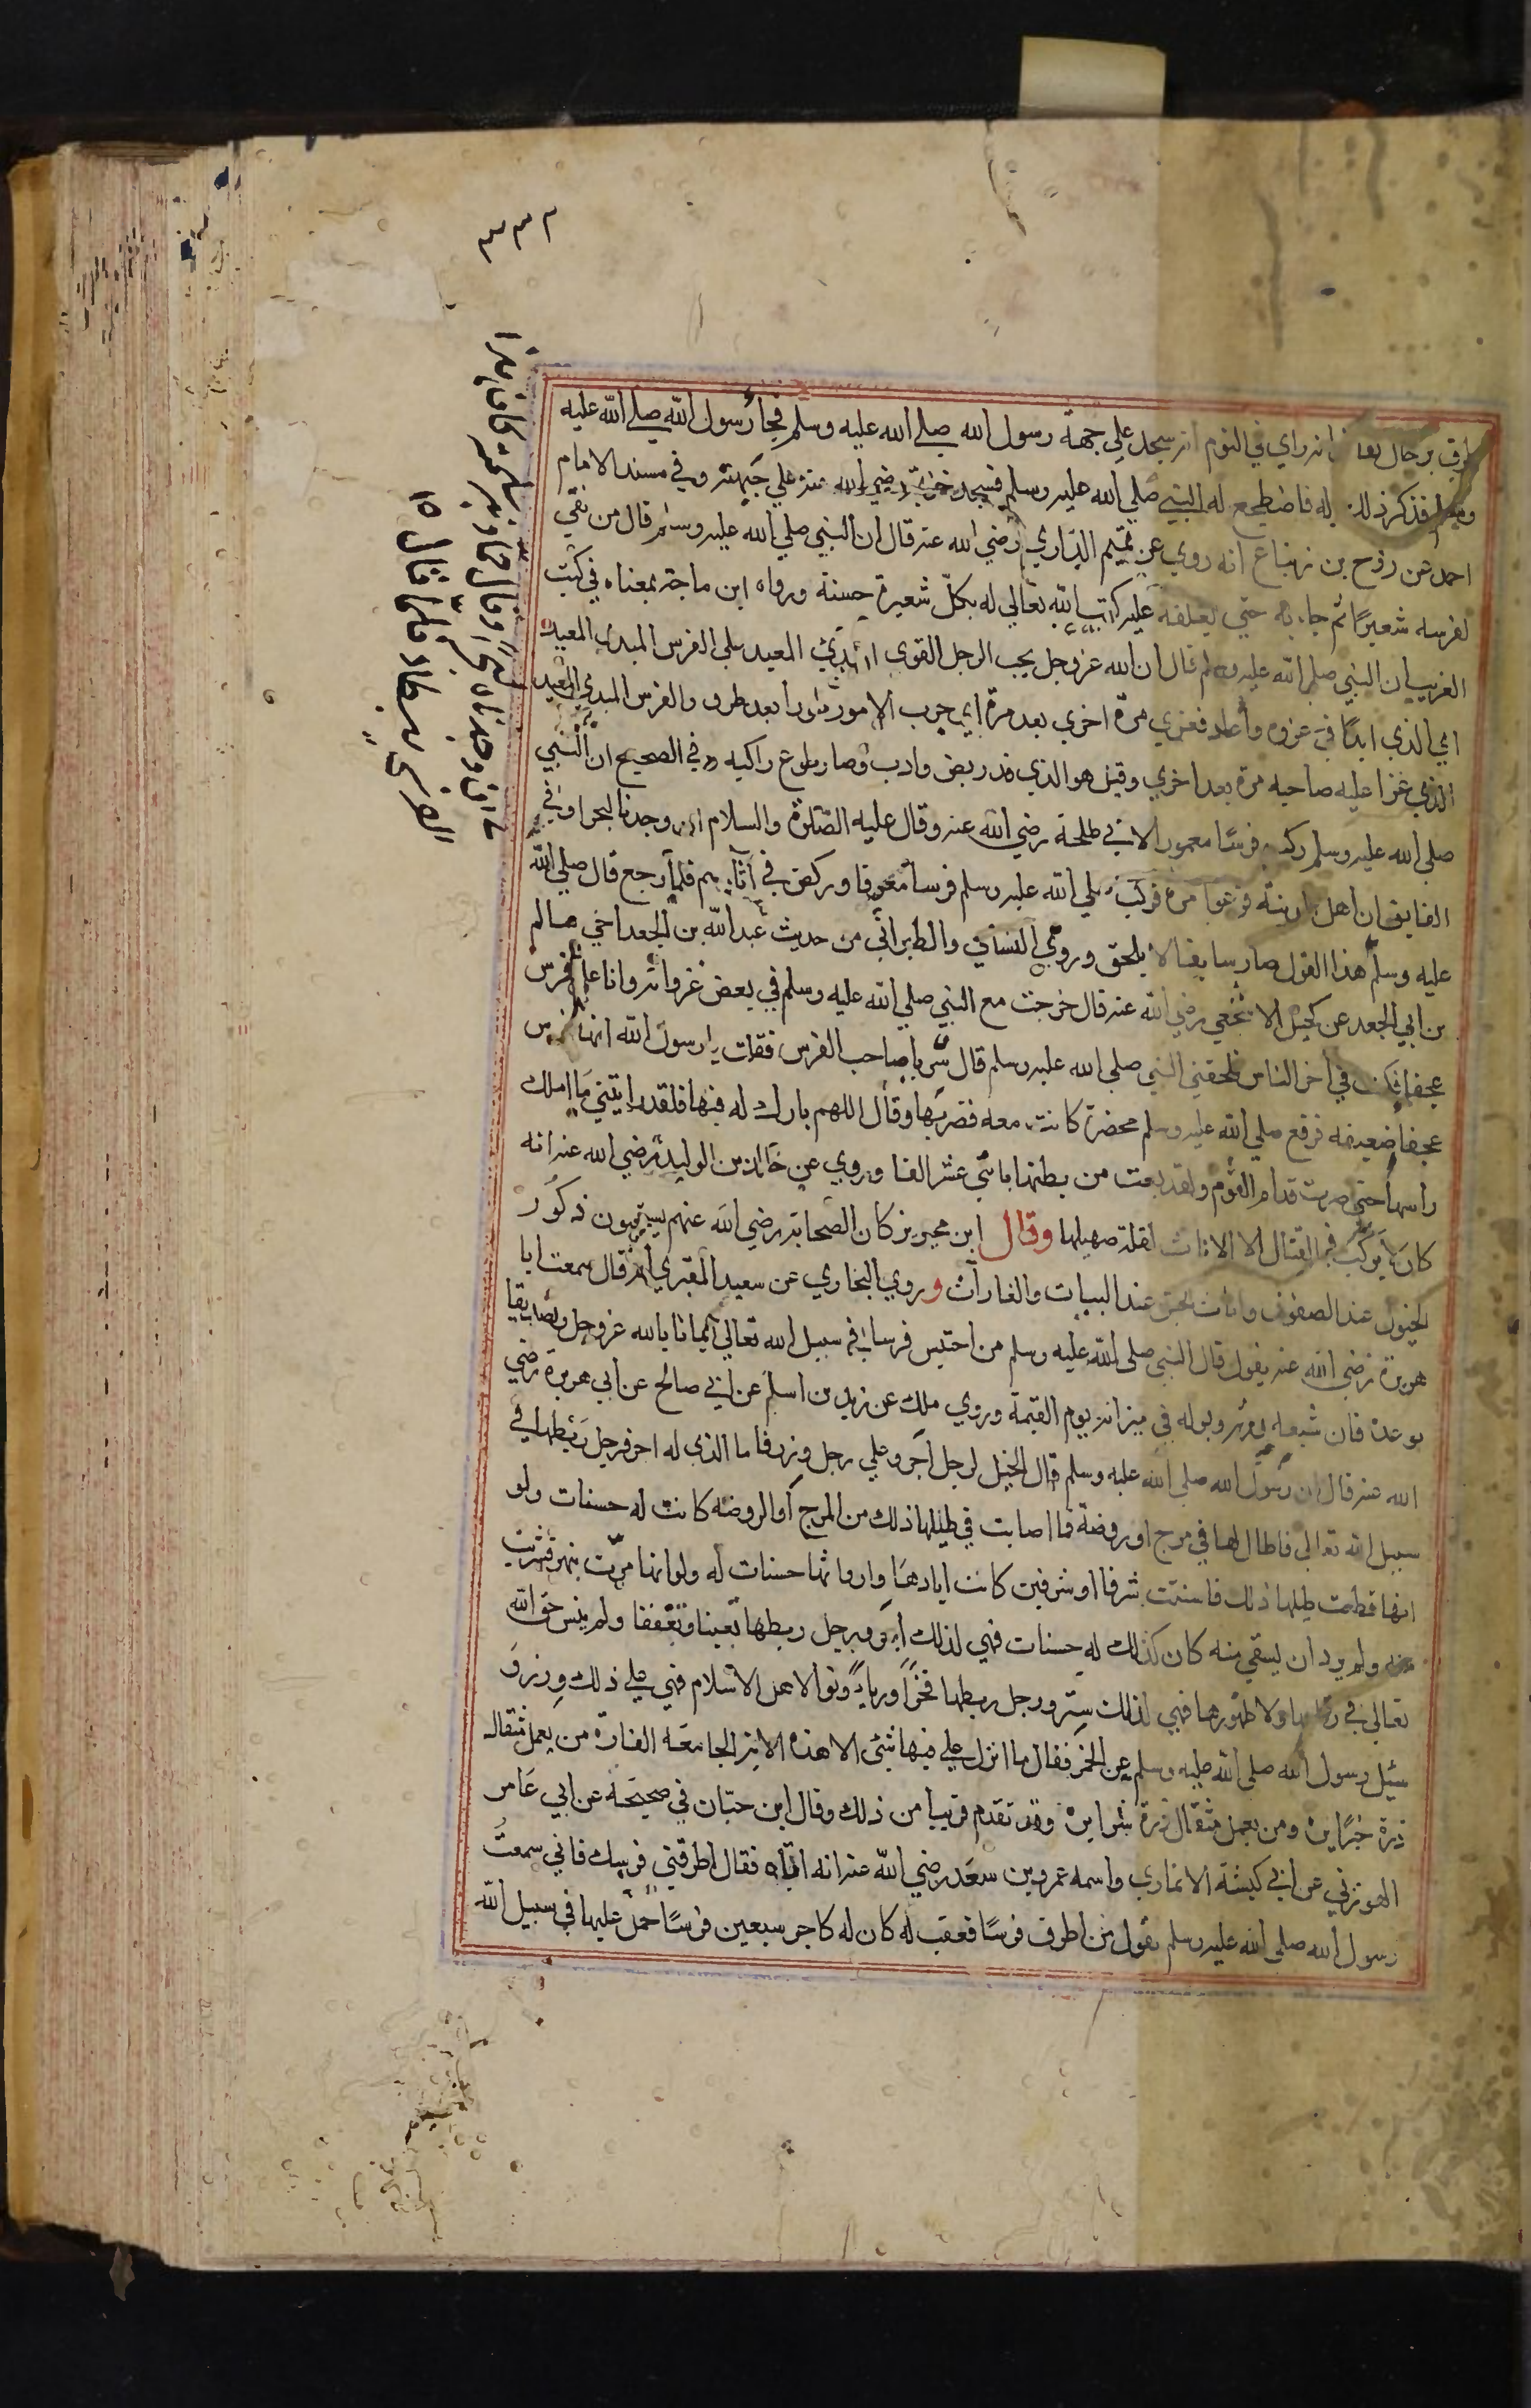 ٣٣٢
انه راي في النوم انه سجد علي جبهة رسول الله صلي الله عليه وسلم فجأ رسول الله صلي الله عليه
فذكر ذلك له فاضطجع له النبي صلي الله عليه وسلم فسجد خزيمة رضي الله عنه علي جبهته وفي مسند الامام
احمد عن روح بن زنباع انه روي عن تميم الداري رضي الله عنه قال ان النبي صلي الله عليه وسلم قال من نقي
لفرسه شعيرًا ثم جاء به حتي يعلفه عليه كتب الله تعالي له بكل شعيرة حسنة ورواه ابن ماجة بمعناه في كتب
الغريب ان النبي صلي الله عليه وسلم قال ان الله عز وجل يحب الرجل القوي المبدي المعيد علي الفرس المبدي المعيد
اي الذي ابدًا في غزوه واعاد فغزي مرة اخري بعد مرة اي جرب الامور بعد طور والفرس المبدي المعيد
الذي غزا عليه صاحبه مرة بعد اخري وقيل هو الذي قد ريض وادب وصار طوع راكبه وفي الصحيح ان النبي
صلي الله عليه وسلم ركب فرسًا معرورا لابي طلحة رضي الله عنه وقال عليه الصلوة والسلام ان وجدنا لبحرا وفي
الفايق ان اهل المدينة فزعوا مرة فركب صلي الله عليه وسلم فرسا معروفا وركض في آثارهم فلما رجع قال صلي الله
عليه وسلم هذا القول صار سابقا لا يلحق وروي النساني والطبراني من حديث عبد الله بن الجعد اخي سالم
بن ابي الجعد عن جعيل الاشجعي رضي الله عنه قال خرجت مع النبي صلي الله عليه وسلم في بعض غزواته وانا علي فرس
عجفا فكنت في اخر الناس فلحقني النبي صلي الله عليه وسلم قال سر يا صاحب الفرس فقلت يا رسول الله انها فرس
عجفا ضعيفه فرفع صلي الله عليه وسلم محضرة كانت معه فضربها وقال اللهم بارك له فيها فلقد رايتني ما املك
راسها حتي صرت قدام القوم ولقد بعت من بطنها باثني عشر الفا وروي عن خالد بن الوليد رضي الله عنه انه
كان لا يركب في القتال الا الاناث لقلة صهيلها وقال ابن محيريز كان الصحابة رضي الله عنهم يستحبون ذكور
الخيول عند الصفوف واناث الخيل عند البيات والغارات وروي البخاري عن سعيد المقبري انه قال سمعت ابا
هريرة رضي الله عنه يقول قال النبي صلي الله عليه وسلم من احتبس فرسا في سبيل الله تعالي ايمانا بالله عز وجل وتصديقا
بوعده فان شبعه وروثه وبوله في ميزانه يوم القيمة وروي ملك عن زيد بن اسلم عن ابي صالح عن ابي هريرة رضي
الله عنه قال ان رسول الله صلي الله عليه وسلم قال الخيل لرجل اجر وعلي رجل وزر فاما الذي له اجر فرجل ربطها في
سبيل الله تعالي فاطال لها في مرج او روضة فما اصابت في طيلها ذلك من المرج أو الروضه كانت له حسنات ولو
انها قطعت طيلها ذلك فاستنت شرفا او شرفين كانت اثارها وارواثها حسنات له ولو انها مرت بنهر فشربت
منه ولم يرد ان يسقي منه كان كذلك له حسنات فهي لذلك اجر ورجل ربطها تغنيا وتعففا ولم ينس حق الله
تعالي في رقابها ولا ظهورها فهي لذلك ستر ورجل ربطها فخرًا ورياءً ونوا لاهل الاسلام فهي علي ذلك وزر و
سئيل رسول الله صلي الله عليه وسلم عن الحمر فقال ما انزل علي فيها شئ الا هذه الاية الجامعه الفاذة من يعمل مثقال
ذرة خيرًا يره ومن يعمل مثقال ذرة شرا يره وقد تقدم قريبا من ذلك وقال ابن حبّان في صحيحه عن ابي عامر
الهوزني عن ابي كبشة الانماري واسمه عمرو بن سعد رضي الله عنه انه اتاه فقال اطرقني فرسك فاني سمعت
رسول الله صلي الله عليه وسلم يقول من اطرف فرسًا فعقب له كان له كاجر سبعين فرسًا حمل عليها في سبيل الله